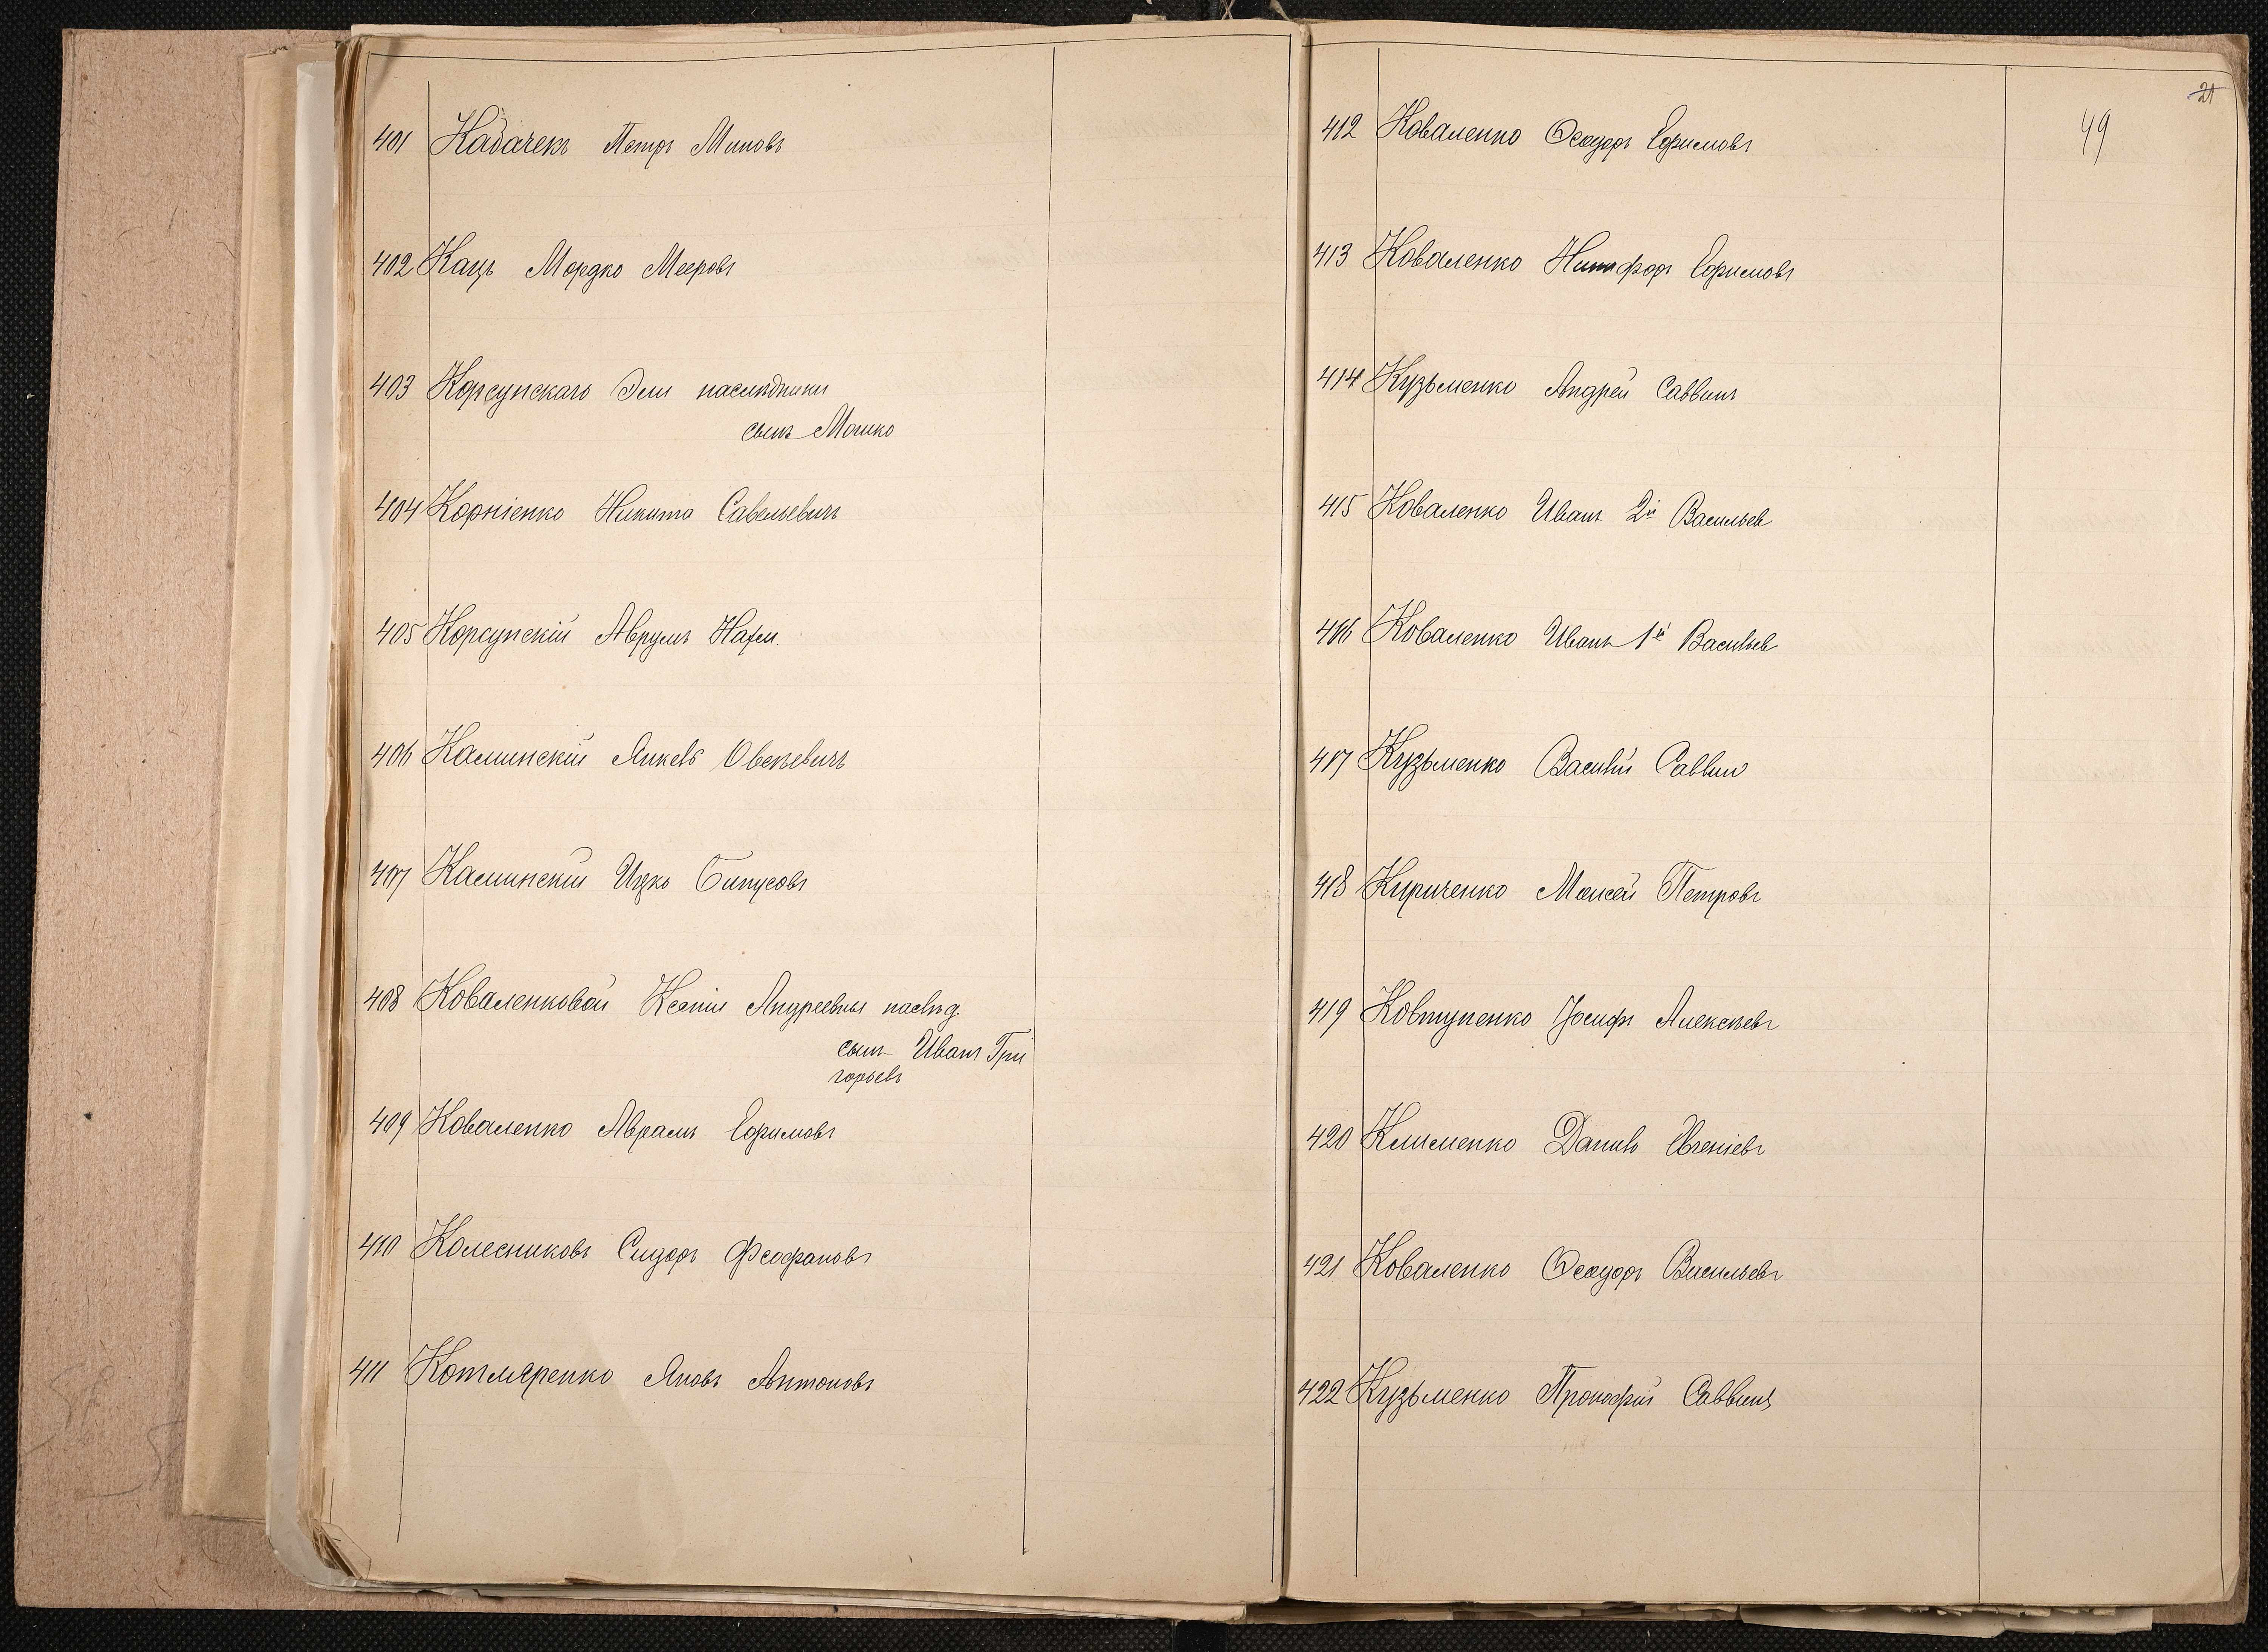 401 Кабачекъ Петръ Миновъ
402 Кацъ Мордко Мееровъ
403 Корсунскаго Эли наслѣдники
сынъ Мошко
404 Корніенко Никита Савельевичъ
405 Корсунскій Аврумъ Нахм.
406 Каминскій Янкевъ Овсѣевичъ
407 Каминскій Ицко
408 Коваленковой Ксеніи Андреевны наслѣд.
сынъ Иванъ Гри
горьевъ
409 Коваленко Аврамъ Ефимовъ
410 Колесниковъ Сидоръ Феофановъ
411 Котляренко Яковъ Антоновъ
21
49
412 Коваленко Ѳеодоръ Ефимовъ
413 Коваленко Никифоръ Ефимовъ
414 Кузьменко Андрей Саввинъ
415 Коваленко Иванъ 2й Васильев
416 Коваленко Иванъ 1й Васильев
417 Кузьменко Василій Саввин
418 Кириченко Моисей Петровъ
419 Ковтуненко Іосифъ Алексѣевъ
420 Клименко Данило Евгеніевъ
421 Коваленко Ѳеодоръ Васильевъ
422 Кузьменко Прокофій Саввинъ